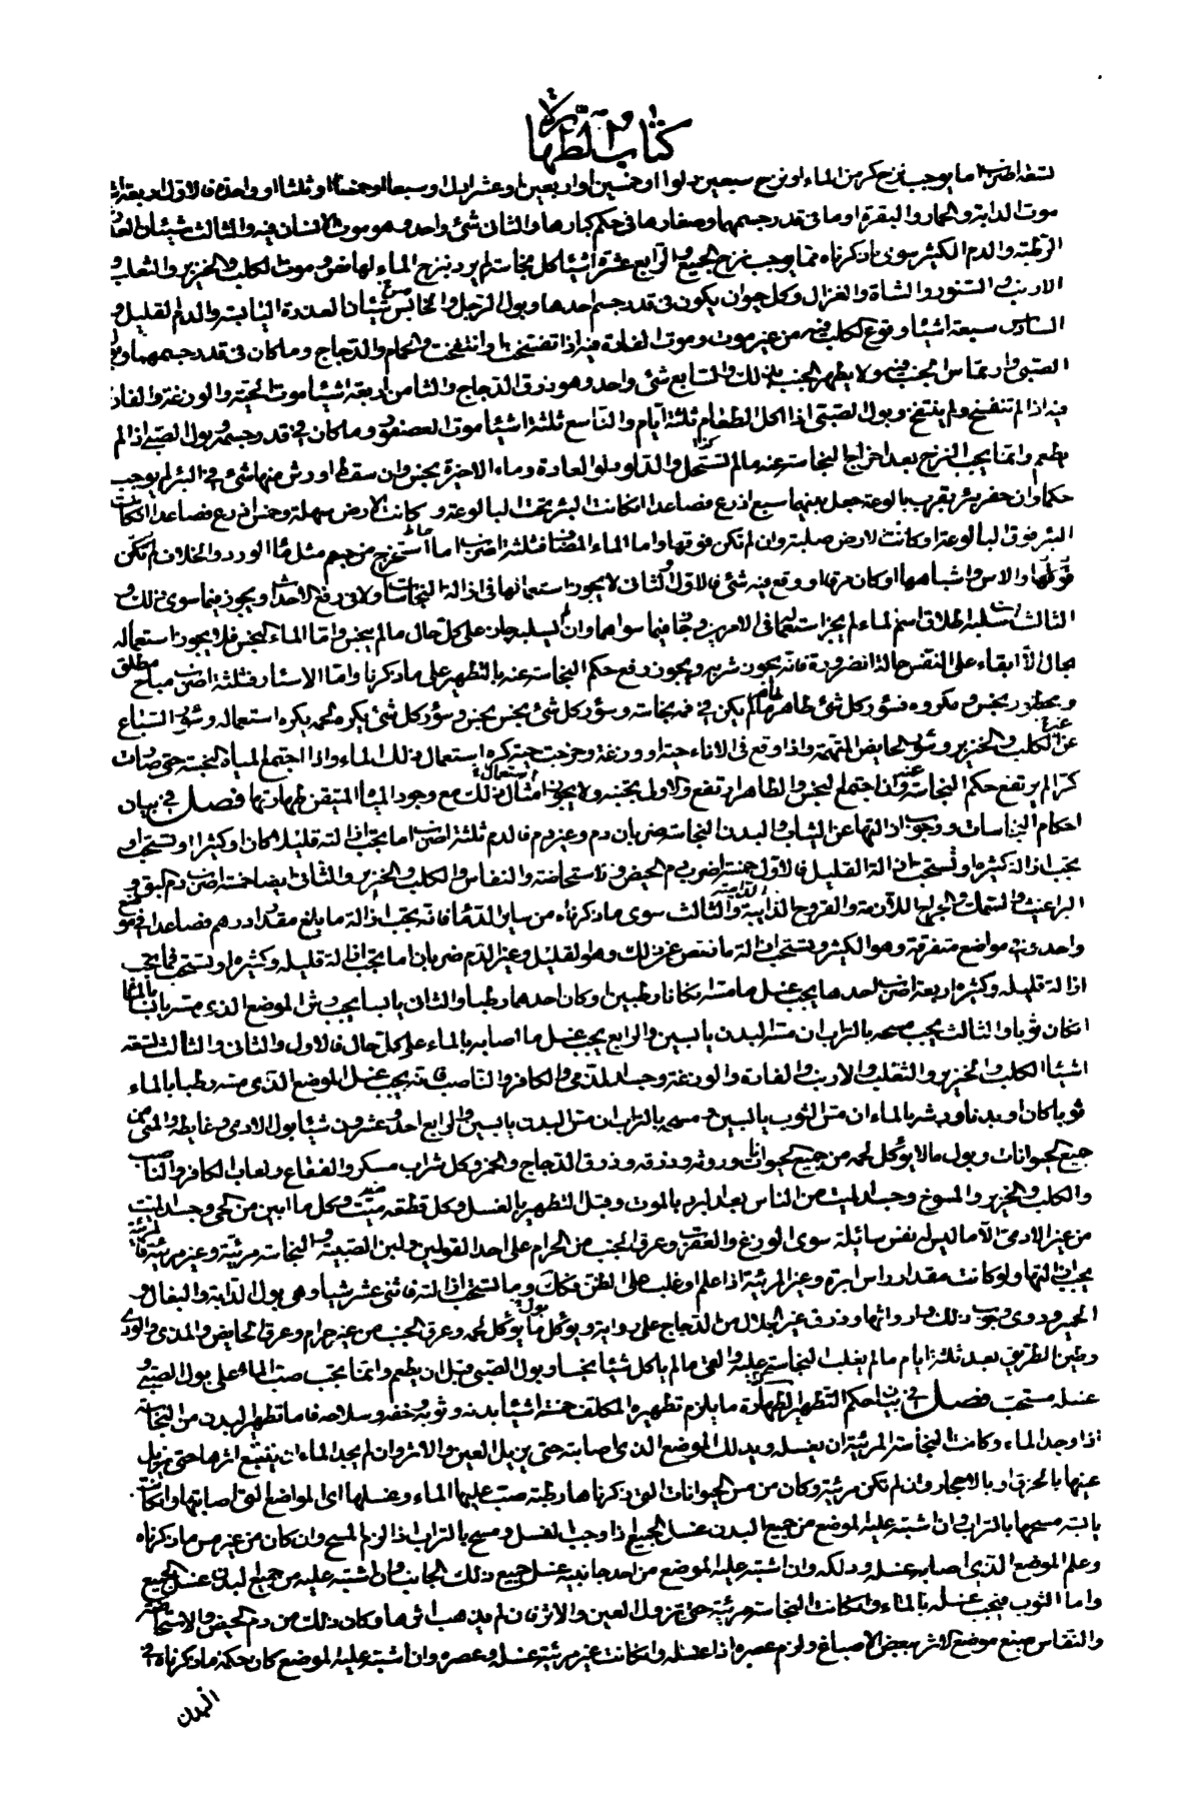 كتاب الطهارة
لتسعة اضرب اما يوجب نزح كر من الماء او نزح سبعين دلوا او خمسين او اربعين او عشرا بل او سبعا او خمسا او ثلثا او واحدة فالاول اربعة اشيا
موت الدابة والحمار والبقرة او ما في قدر جسمها وصغارها في حكم كبارها والثاني شئ واحد وهو موت الانسان فيه والثالث شيئان العذرة
الرطبة والدم الكثير سوى ما ذكرناه مما يوجب نزح الجميع والرابع عشرة اشيا كل نجاسة لم يرد بنزح الماء لها نص وموت الكلب والخنزير والثعلب و
الارنب والسنور والشاة والغزال وكل حيوان يكون في قدر جسم احدها وبول الرجل والخامس شيئان العذرة اليابسة والدم القليل و
السادس سبعة اشيا وقوع الكلب فيه من غير موت وموت الفارة فيه اذا تفسخت او انتفخت والحمام والدجاج وما كان في قدر جسمهما وبول
الصبي وارتماس الجنب فيه ولا يطهر الجنب بذلك والسابع شئ واحد وهو ذرق الدجاج والثامن اربعة اشيا موت الحية والوزغة والفارة
فيه اذا لم تنفسخ ولم ينتفخ وبول الصبي اذا اكل الطعام ثلثة ايام والتاسع ثلثة اشيا موت العصفور وما كان في قدر جسمه وبول الصبي اذا لم
يطعم وانما يجب النزح بعد اخراج النجاسة عنه ما لم تستحل والدلو دلو العادة وماء الاخيرة نجس وان سقط او رش منها شئ في البئر لم يوجب
حكما وان حفر بئر بقرب بالوعة جعل بينهما سبع اذرع فصاعدا ان كانت البئر تحت البالوعة وكانت الارض سهلة وخمس اذرع فصاعدا ان كانت
البئر فوق البالوعة او كانت الارض صلبة وان لم تكن فوقها واما الماء المضاف فثلثة اضرب اما استخرج من جسم مثل ماء الورد والخلاف
والاس واشباهها او كان مرقا او وقع فيه شئ فالاول والثاني لا يجوز استعمالها في ازالة النجاسات ولا في رفع الاحداث ويجوز فيما سوى ذلك و
الثالث ان سلبه اطلاق اسم الماء لم يجز استعمالها في الامرين وجاز فيما سواهما وان لم يسلبه جاز على كل حال ما لم ينجس واما الماء النجس فلا يجوز استعماله
بحال الا ابقاء على النفس حالة الضرورة فانه يجوز شربه ويجوز رفع حكم النجاسة عنه بالتطهير على ما ذكرنا واما الاسئار فثلثة اضرب مباح مطلق
ومحظور نجس ومكروه فسؤر كل شئ طاهر طاهر ما لم يكن في فمه نجاسة وسؤر كل شئ نجس نجس وسؤر كل شئ يكره لحمه يكره استعماله وسؤر السباع
غير الكلب والخنزير وسؤر الحايض المتهمة واذا وقع في الاناء حية او وزغة وخرجت حية كره استعمال ذلك الماء واذا اجتمع المياه النجسة حتى صارت
كرا لم يرتفع حكم النجاسة عنه وان اجتمع النجس والطاهر ارتفع والاولى تجنبه ولا يجوز استعمال امثال ذلك مع وجود المياه المتيقن طهارتها فصل في بيان
احكام النجاسات ووجوب ازالتها عن الثياب والبدن النجاسة ضربان دم وغير دم فالدم ثلثة اضرب اما يجب ازالة قليله كان او كثيرا او تستحب او
يجب ازالة كثيره وتستحب ازالة القليل فالاول خمسة اضرب دم الحيض والاستحاضة والنفاس والكلب والخنزير والثاني ايضا خمسة اضرب دم البق و
البراغيث والسمك والجراح اللازمة والقروح الدامية والثالث سوى ما ذكرناه من ساير الدماء فانه يجب ازالة ما بلغ مقدار درهم فصاعدا في موضع
واحد وفي مواضع متفرقة وهو الكثير ويستحب ازالة ما نقص عن ذلك وهو القليل وغير الدم ضربان اما يجب ازالة قليله وكثيره او يستحب فما يجب
ازالة قليله وكثيره اربعة اضرب احدها يجب غسل ما مسه ان كانا رطبين او كان احدهما رطبا والثاني يابسا يجب رش الموضع الذي مسه يابسا بالماء
ان كان ثوبا والثالث يجب مسحه بالتراب ان مسه البدن يابسين والرابع يجب غسل ما اصابه بالماء على كل حال فالاول والثاني والثالث تسعة
اشيا الكلب والخنزير والثعلب والارنب والفارة والوزغة وجسد الذمي والكافر والناصب فانه يجب غسل الموضع الذي مسه رطبا بالماء
ثوبا كان او بدنا ورشه بالماء ان مس الثوب يابسين ومسحه بالتراب ان مس البدن يابسين والرابع احد وعشرون شيئا بول الادمي وغايطه والمني من
جميع الحيوانات وبول ما لا يؤكل لحمه من جميع الحيوانات وروثه وذرقه وذرق الدجاج والخمر وكل شراب مسكر والفقاع ولعاب الكافر والناصب
والكلب والخنزير والمسوخ وجسد الميت من الناس بعد البرد بالموت وقبل التطهير بالغسل وكل قطعة ميت وكل ما ابين من الحي وجسد الميت
من غير الادمي الا ما ليس له نفس سائلة سوى الوزغ والعقرب وعرق الجنب من الحرام على احد القولين ولبن الصبية والنجاسة مرئية وغير مرئية فالمرئية
يجب ازالتها ولو كانت مقدار راس ابرة وغير المرئية اذا علم او غلب على الظن فكك وما تستحب ازالته فاثنى عشر شيا وهي بول الدابة والبغال و
الحمير وروى وجوب ذلك وارواثها وذرق غير الجلال من الدجاج على رواية وبول ما يؤكل لحمه وعرق الجنب من غير حرام وعرق الحايض والمذي والوذي
وطين الطريق بعد ثلثة ايام ما لم يغلب النجاسة عليه والقئ ما لم ياكل شيئا نجسا وبول الصبي قبل ان يطعم وانما يجب صب الماء على بول الصبي و
غسله مستحب فصل في بيان احكام التطهير الطهارة ما يلزم تطهيره المكلف خمسة اشيا بدنه وثوبه وخفه وسلاحه فاما تطهير البدن من النجاسة
اذا وجد الماء وكانت النجاسة المرئية ان يغسله ويدلك الموضع الذي اصابه حتى يزيل العين والاثر وان لم يجد الماء ان يتتبع اثرها حتى يزيل
عينها بالخرق او بالاحجار وان لم تكن مرئية وكان من مس الحيوانات التي ذكرناها رطبة صب عليها الماء وغسلها اى المواضع التي اصابتها وان كانت
يابسة مسحها بالتراب وان اشتبه عليه الموضع من جميع البدن غسل الجميع اذا وجب الغسل ومسح بالتراب اذا لزم المسح وان كان من غير مس ما ذكرناه
وعلم الموضع الذي اصابه غسله ودلكه وان اشتبه عليه الموضع من احد جانبيه غسل جميع ذلك الجانب وان اشتبه عليه من جميع البدن غسل الجميع
واما الثوب فيجب غسله بالماء وان كانت النجاسة مرئية حتى تزول العين والاثر فان لم يذهب اثرها وكان ذلك من دم الحيض والاستحاضة
والنفاس صبغ موضع الاثر ببعض الاصباغ ولزم عصره اذا غسله وان كانت غير مرئية غسله وعصره وان اشتبه عليه الموضع كان حكمه ما ذكرناه في
البدن